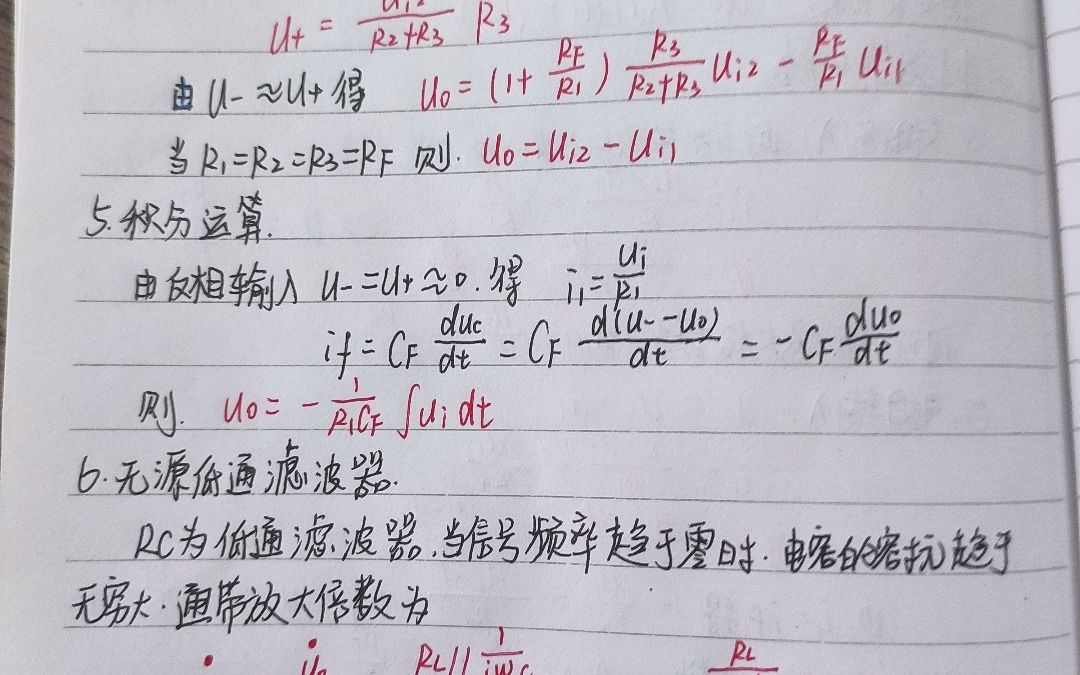 U+ = Ui2/(R2+R3) R3
由 U- ≈ U+ 得 U0 = (1 + RF/R1) R3/(R2+R3) Ui2 - RF/R1 Ui1
当 R1=R2=R3=RF 则. U0 = Ui2 - Ui1
5. 积分运算.
由反相输入 U- = U+ ≈ 0. 得 i1 = Ui/R1
if = CF duc/dt = CF d(u- - u0)/dt = - CF du0/dt
则. U0 = - 1/(R1CF) ∫ui dt
6. 无源低通滤波器.
RC为低通滤波器.当信号频率趋于零时.电容的容抗趋于
无穷大.通带放大倍数为
RL// 1/jwc RL